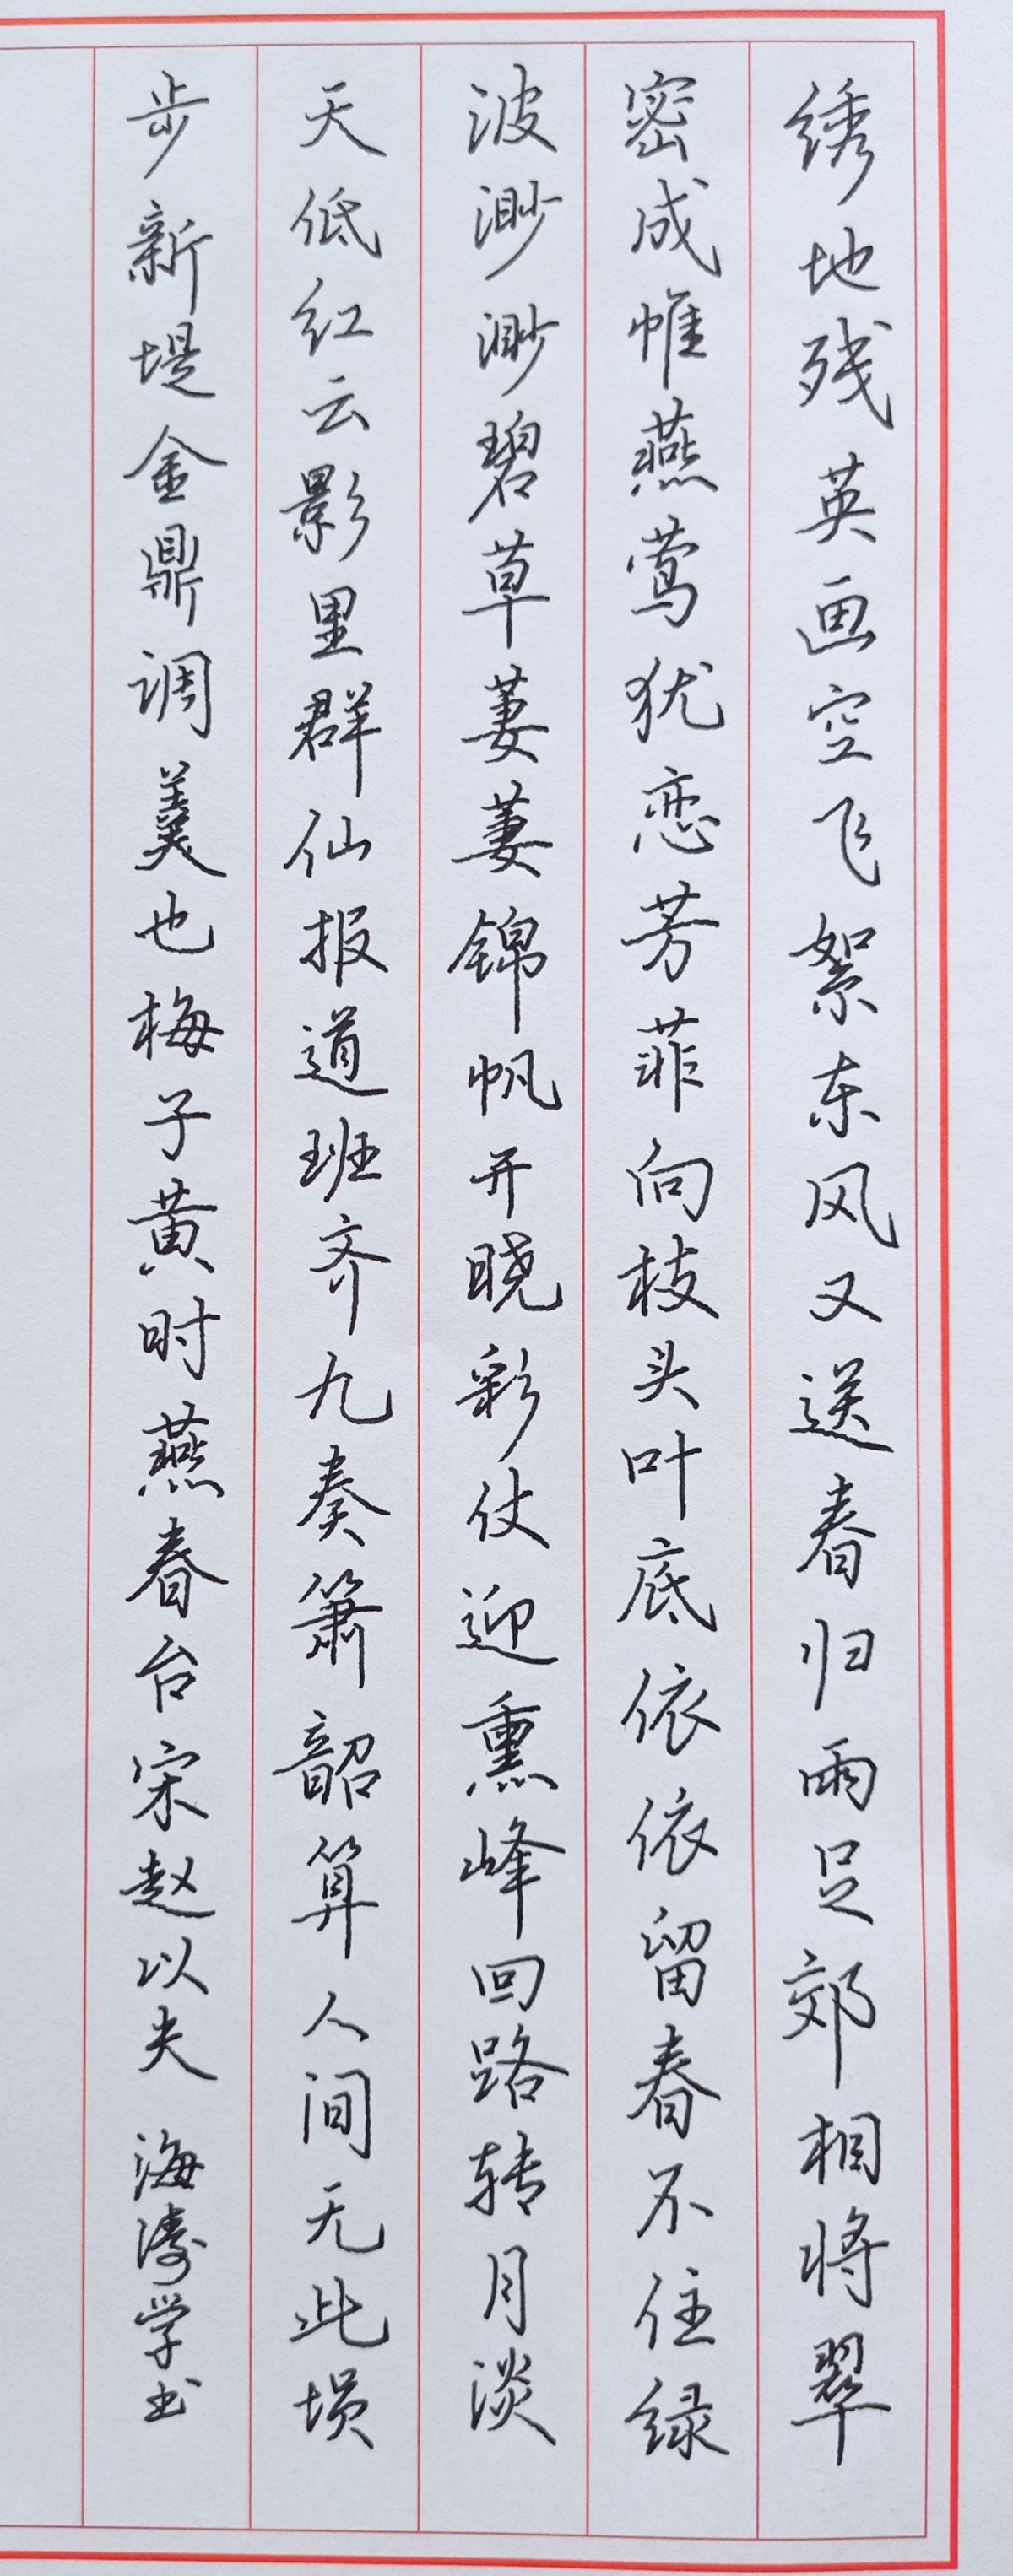 绣地残英画空飞絮东风又送春归雨足郊相将翠
密成帷燕莺犹恋芳菲向枝头叶底依依留春不住绿
波渺渺碧草萋萋锦帆开晓彩仗迎熏峰回路转月淡
天低红云影里群仙报道班齐九奏箫韶算人间无此埙
步新堤金鼎调羹也梅子黄时燕春台宋赵以夫 海涛学书